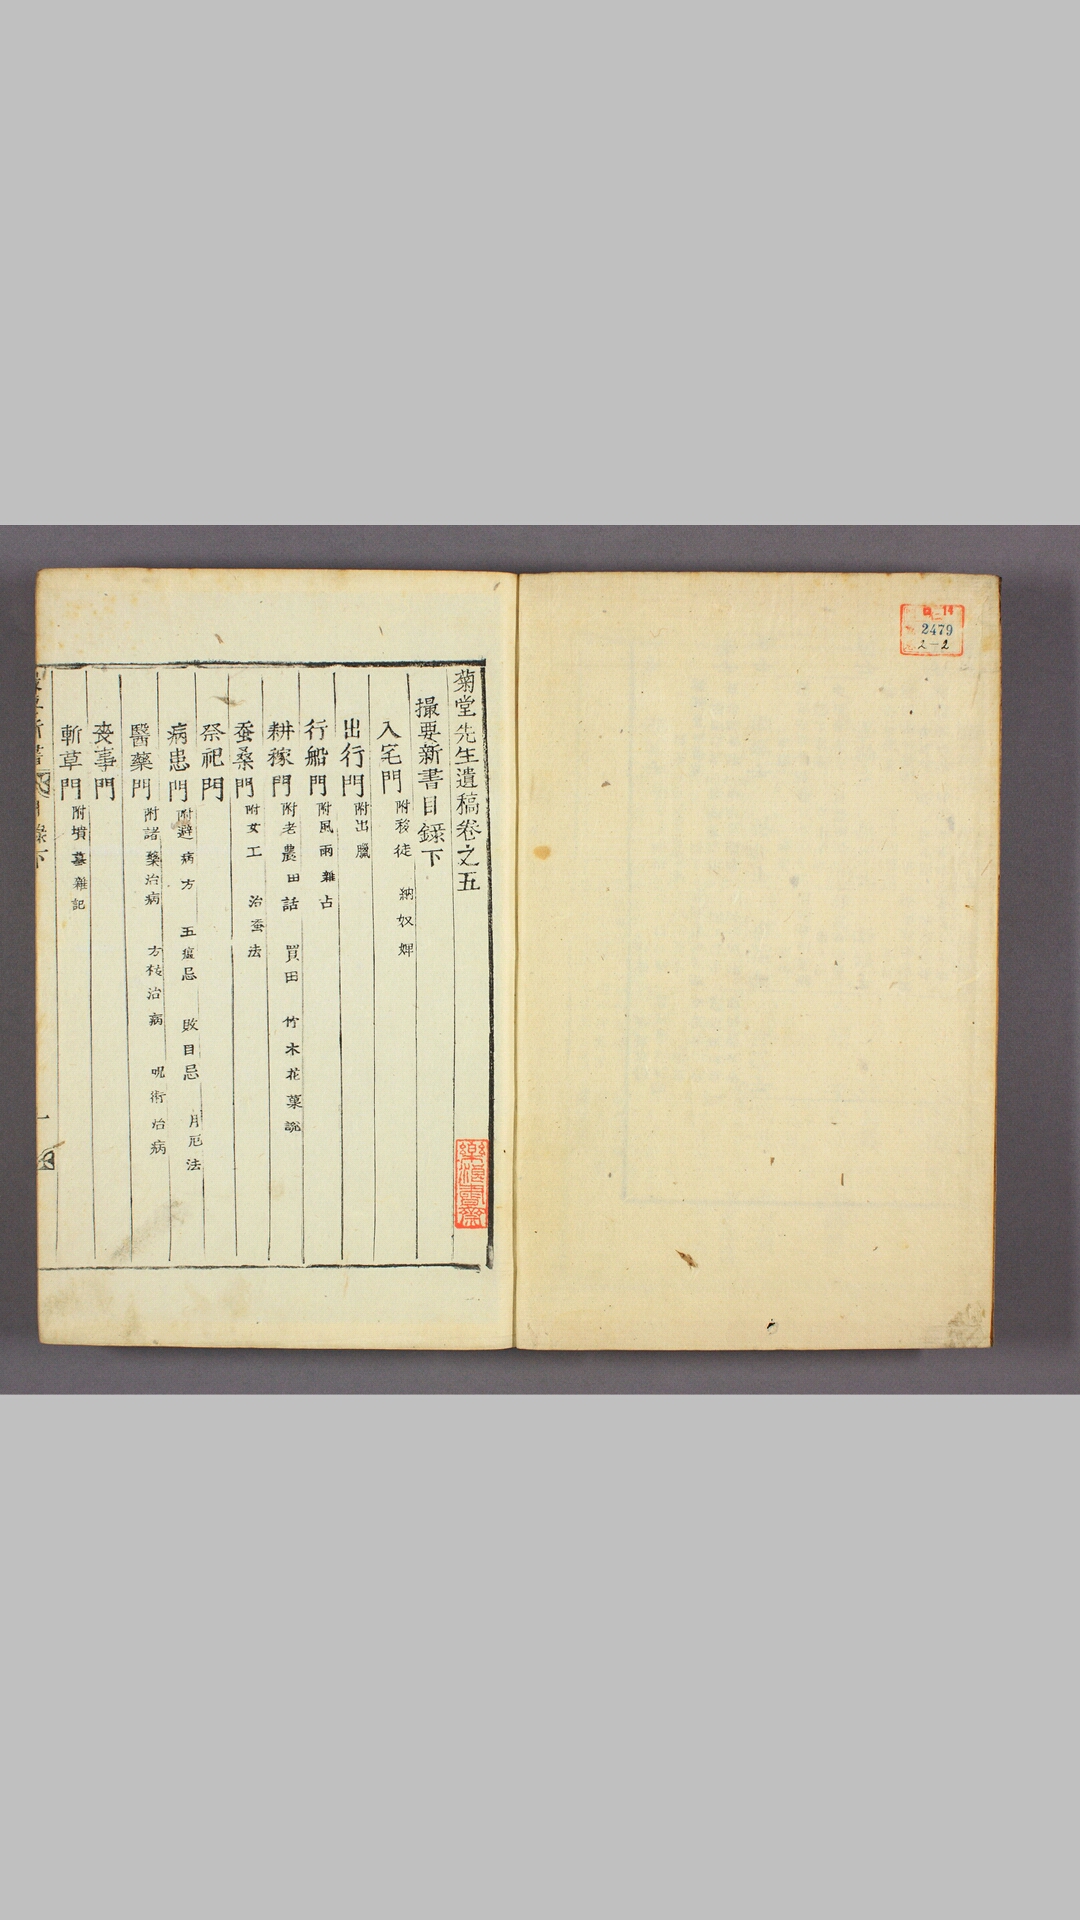 2479
2-2
菊堂先生遺稿卷之五
撮要新書目錄下
入宅門 附移徙 納奴婢
出行門 附出獵
行船門 附風雨雜占
耕稼門 附老農田話 買田 竹木花菓說
蚕桑門 附女工 治蚕法
祭祀門
病患門 附避病方 五瘟忌 敗目忌 月厄法
醫藥門 附諸藥治病 方法治病 呪術治病
喪事門
斬草門 附墳墓雜記